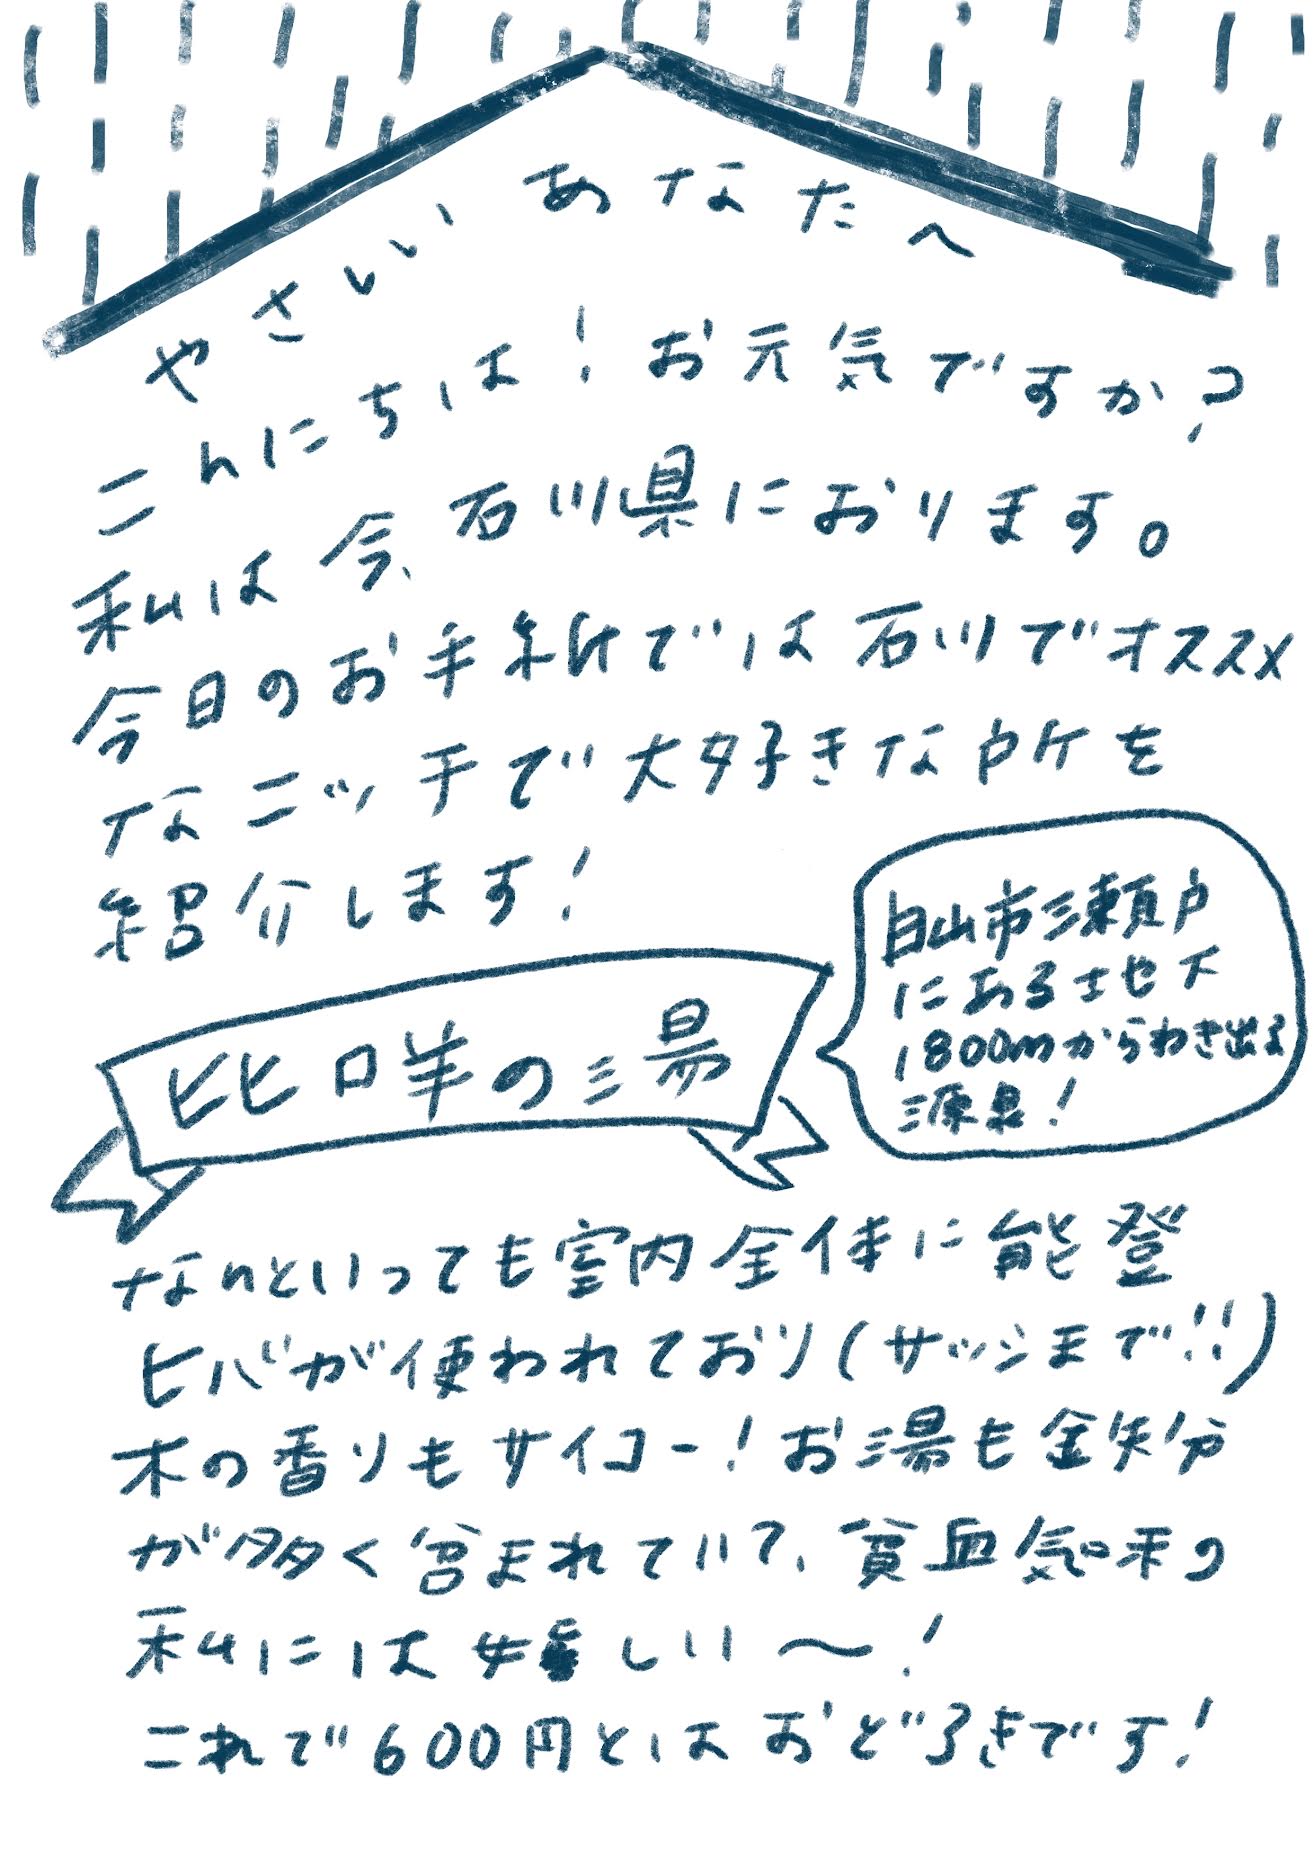 やさしいあなたへ
こんにちは!お元気ですか?
私は今、石川県におります。
今日のお手紙では石川でオススメ
なニッチで大好きな所を
紹介します!
白山市三瀬戸
にある地下
1800mからわき出る
源泉!
比咩の湯
なんといっても室内全体に能登
ヒバが使われており(サッシまで!!)
木の香りもサイコー!お湯も鉄分
が多く含まれていて、貧血気味の
私には嬉しい〜!
これで600円とはおどろきです!